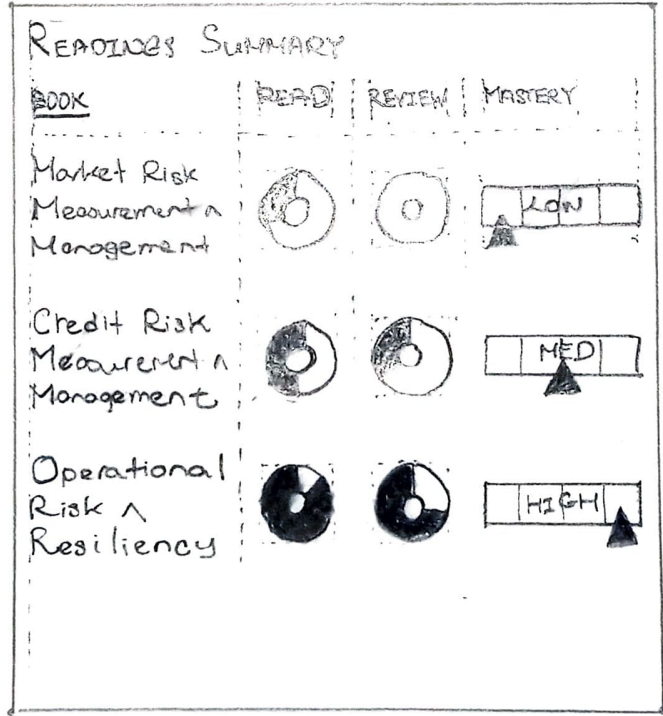 READINGS SUMMARY
BOOK READ REVIEW MASTERY
Market Risk
Measurement ^
Management
LOW
Credit Risk
Measurement ^
Management
MED
Operational
Risk ^
Resiliency
HIGH